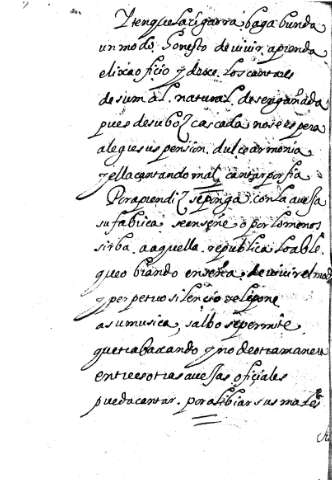 Y tenga la cigarra baga bunda
un modo, honesto de vivir, aprenda
elija oficio y dexe. los cantares
de su mal. natural. desengañada
pues de su boz cascada no se espera
alegre suspension, dulce armonia
y ella cantando mal, cantar porfia
Por aprendiz se ponga con la aveja
su fabrica se enseñe o por lo menos
sirba. a aquella. republica loable.
que obrando enseña de vivir el modo
y perpetuo silencio se le pone
a su musica, salbo se permite
que trabaxando y no de otra manera
entre esotras avejas oficiales
pueda cantar. por alibiar sus males